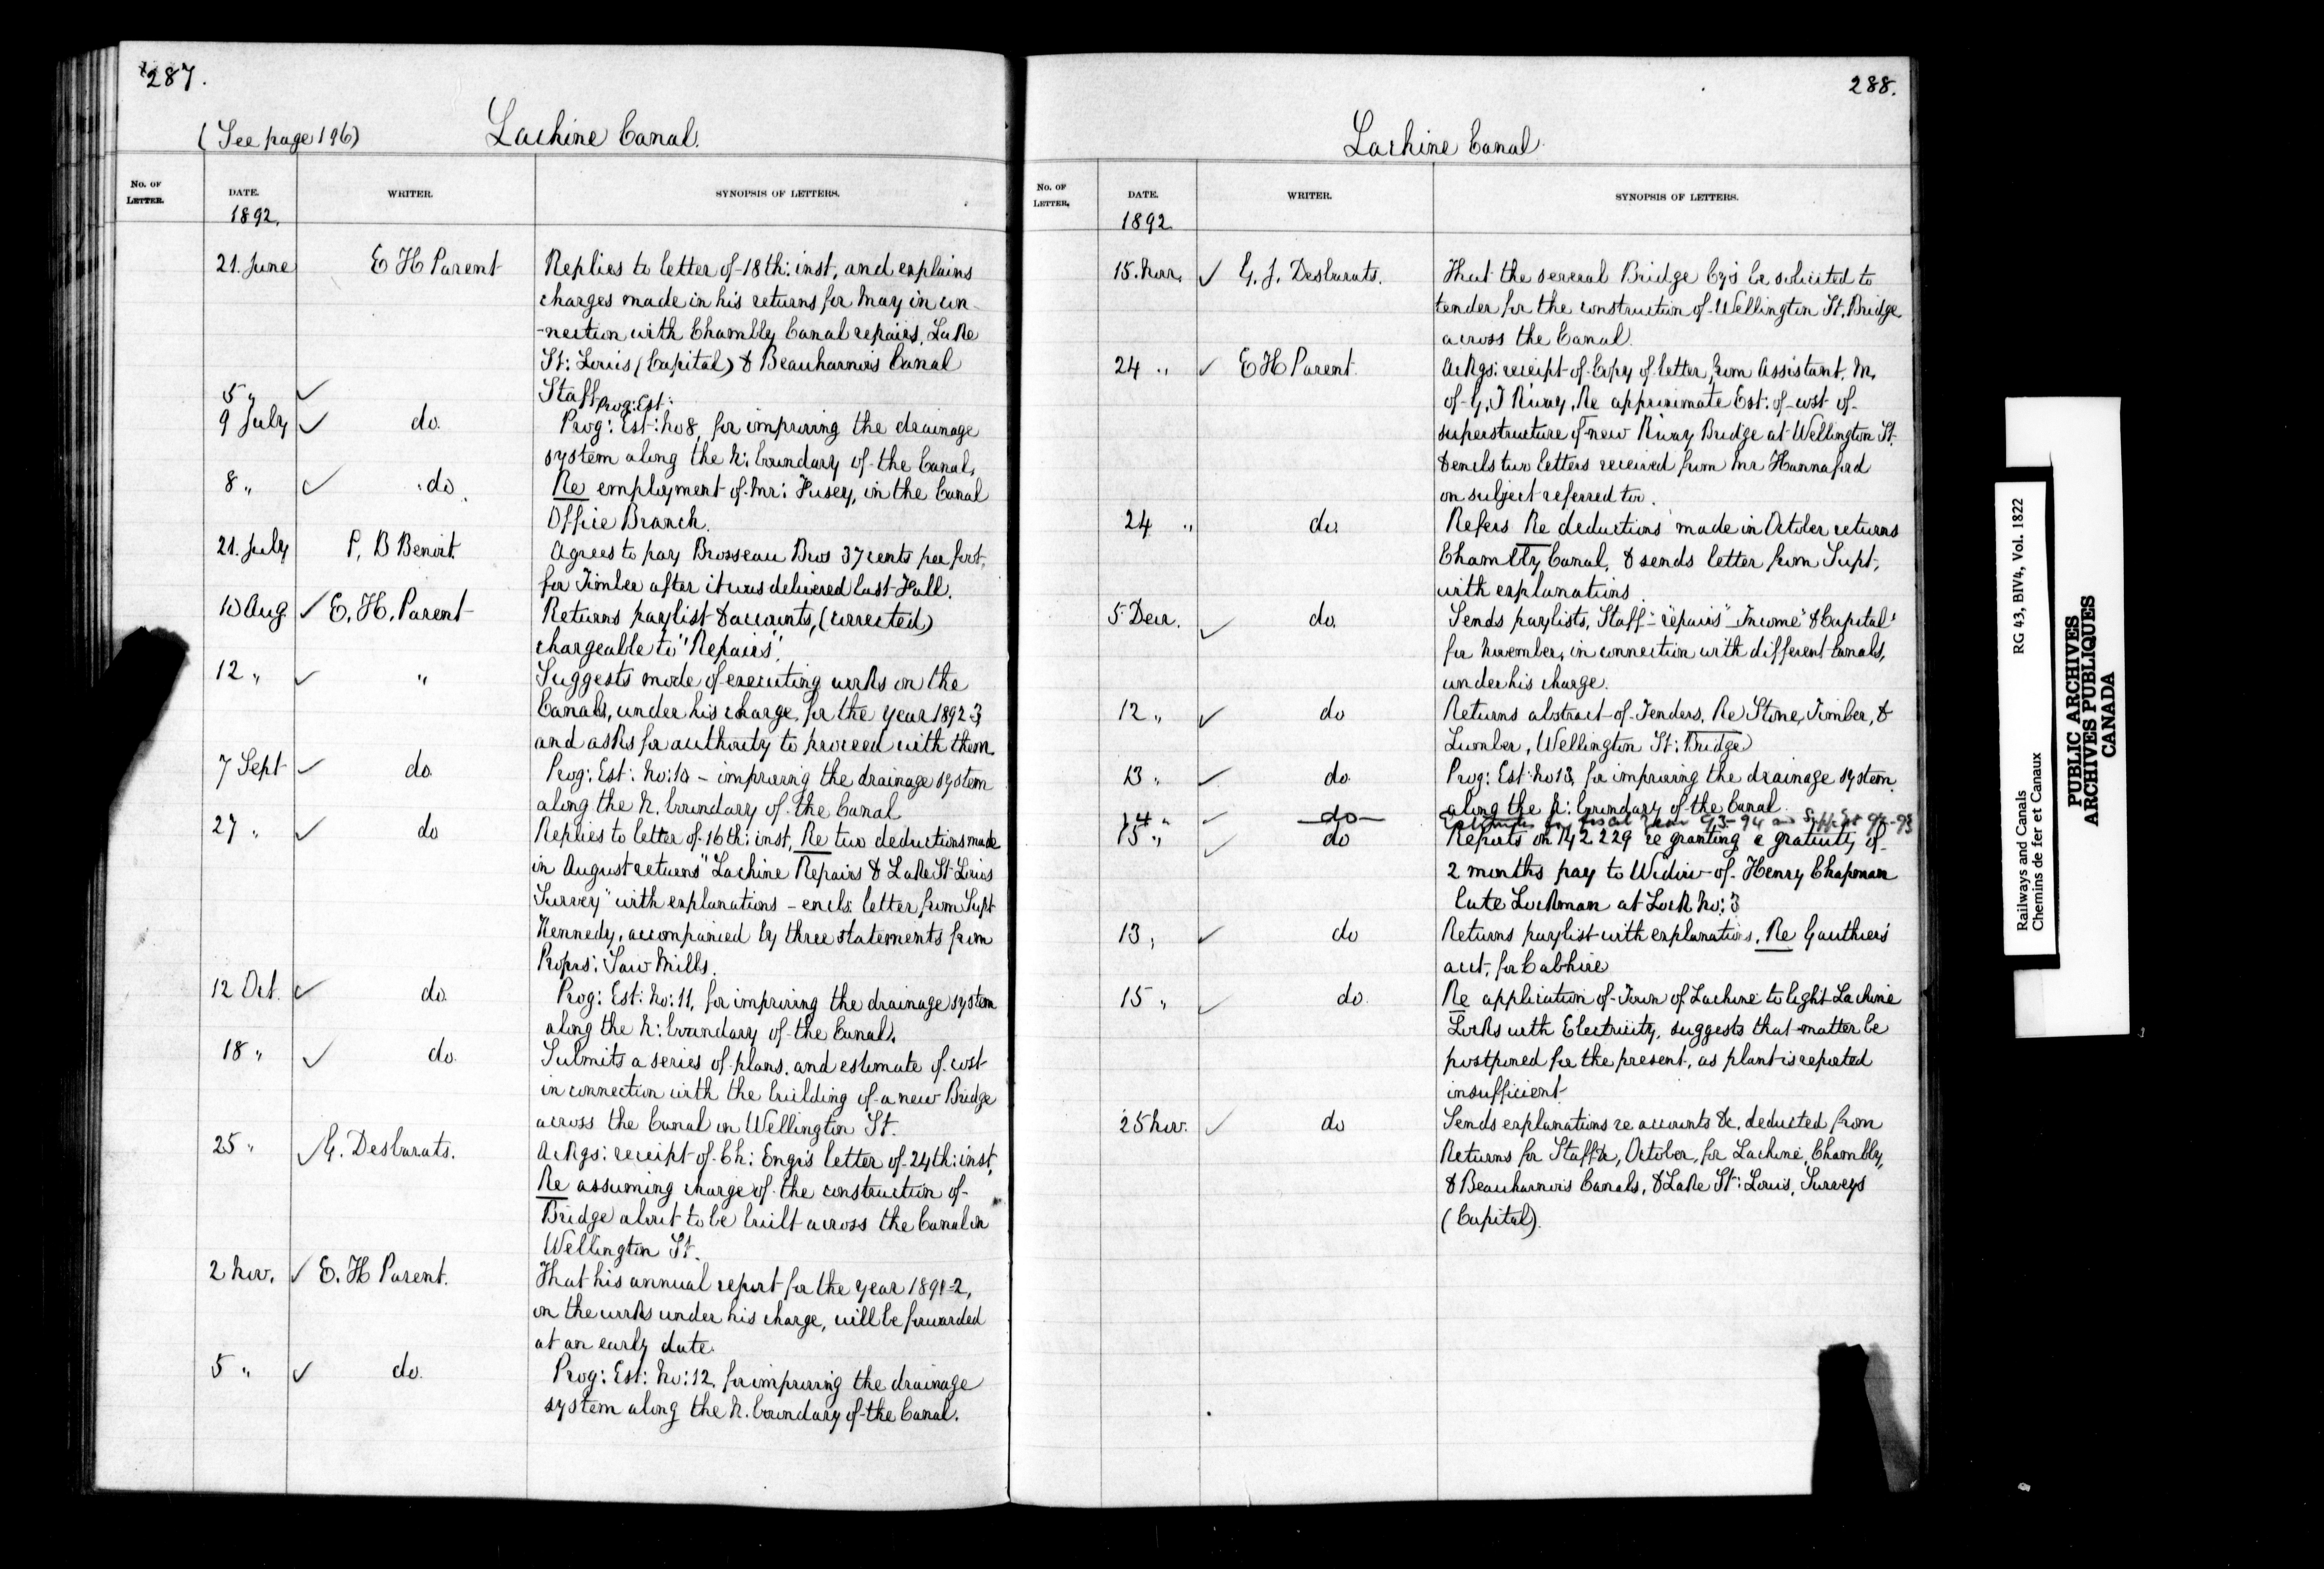 287.
(See page 196) Lachine Canal.
No. OF LETTER. DATE. WRITER. SYNOPSIS OF LETTERS.
1892.
21. June E H Parent Replies to letter of 18th: inst, and explains
charges made in his returns for May in con-
-nection with Chambly Canal repairs, Lake
St: Louis (Capital) & Beauharnois Canal
Staff
5 " ✓ Prog: Est:
9 July ✓ do. Prog: Est: No 8, for improving the drainage
system along the N: boundary of the Canal.
8 " ✓ do. Re employment of Mr: Fusey, in the Canal
Office Branch.
21. July P, B Benoit Agrees to pay Brosseau Bros 37 cents per foot,
for Timber after it was delivered last Fall.
10 Aug ✓ E. H. Parent Returns paylist & accounts, (corrected)
chargeable to "Repairs".
12 " ✓ " Suggests mode of executing works on the
Canals, under his charge, for the year 1892-3
and asks for authority to proceed with them.
7 Sept ✓ do. Prog: Est: No: 10 - improving the drainage system
along the N. boundary of the Canal
27 " ✓ do Replies to letter of 16th: inst, Re two deductions made
in August returns "Lachine Repairs & Lake St Louis
Survey" with explanations - encls: letter from Supt
Kennedy, accompanied by three statements from
Proprs: Saw Mills.
12 Oct. ✓ do. Prog: Est: No: 11, for improving the drainage system
along the N: boundary of the Canal.
18 " ✓ do. Submits a series of plans, and estimate of cost
in connection with the building of a new Bridge
across the Canal on Wellington St.
25 " ✓ G. Desbarats. Ackgs: receipt of Ch: Engr's letter of 24th: inst,
Re assuming charge of the construction of
Bridge about to be built across the Canal on
Wellington St.
2 Nov. ✓ E. H Parent. That his annual report for the year 1891-2,
on the works under his charge, will be forwarded
at an early date.
5 " ✓ do. Prog: Est: No: 12, for improving the drainage
system along the N. boundary of the Canal.
288.
Lachine Canal.
No. OF LETTER. DATE. WRITER. SYNOPSIS OF LETTERS.
1892
15. Nov. ✓ G. J. Desbarats. That the several Bridge Coy's be solicited to
tender for the construction of Wellington St. Bridge
across the Canal.
24 " ✓ E H Parent. Ackgs: receipt of Copy of letter, from Assistant. M,
of G, T Rway, Re approximate Est: of cost of
superstructure of new Rway Bridge at Wellington St.
& encls two letters received from Mr Hannaford
on subject referred to.
24 " do. Refers Re deductions made in October returns
Chambly Canal, & sends letter from Supt,
with explanations.
5 Decr. ✓ do. Sends paylists, Staff "repairs" Income" & Capital"
for November, in connection with different Canals,
under his charge.
12 " ✓ do Returns abstract of Tenders, Re Stone, Timber, &
Lumber, Wellington St: Bridge
13 " ✓ do. Prog: Est: No 13, for improving the drainage system
along the N: boundary of the Canal
14 " ✓ do Estimates for fiscal year 93-94 Suppl 92-93
15 " ✓ do Reports on 142229 re granting a gratuity of
2 months pay to Widow of Henry Chapman
late Lockman at Lock No: 3
13 , ✓ do Returns paylist with explanations, Re Gauthier's
acct, for Cabhire
15 " ✓ do. Re application of Town of Lachine to light Lachine
Locks with Electricity, suggests that matter be
postponed for the present, as plant is reported
insufficient
25 Nov. ✓ do Sends explanations re accounts &c. deducted from
Returns for Staff &c, October, for Lachine, Chambly,
& Beauharnois Canals, & Lake St: Louis, Surveys
(Capital).
Railways and Canals RG 43, BIV4, Vol. 1822
Chemins de fer et Canaux
PUBLIC ARCHIVES
ARCHIVES PUBLIQUES
CANADA